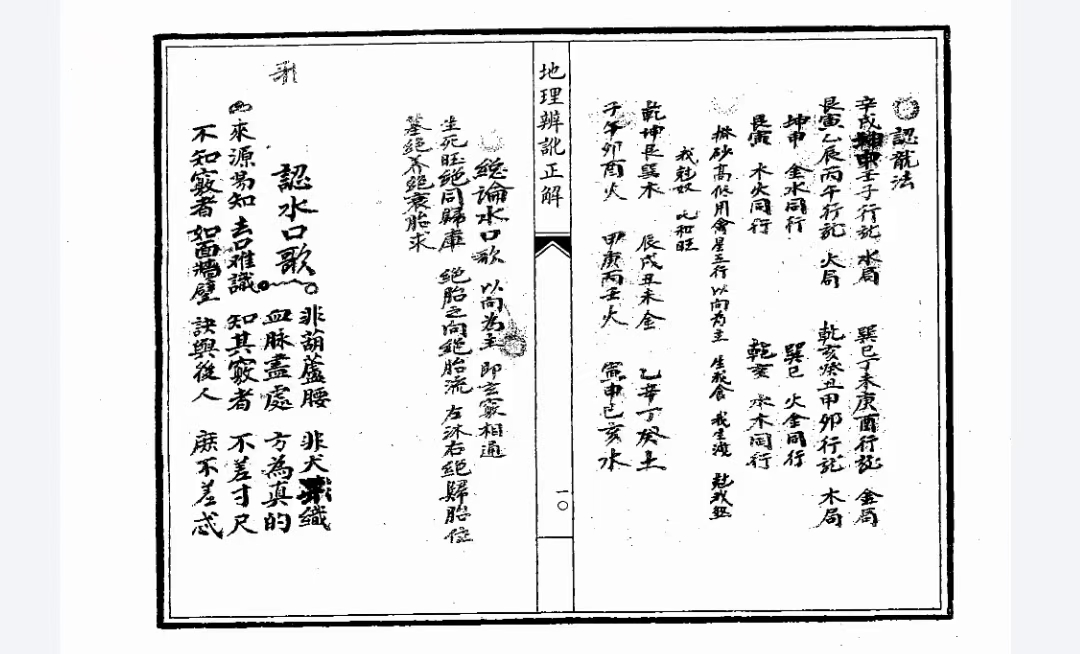 認龍法
辛戌壬子行龍 水局 巽巳丁未庚酉行龍 金局
艮寅乙辰丙午行龍 火局 乾亥癸丑甲卯行龍 木局
坤申 金水同行 巽巳 火金同行
艮寅 木火同行 乾亥 水木同行
撥砂高低用禽星五行以向為主 生我食 我生洩 尅我煞
我尅奴 比和旺
乾坤艮巽木 辰戌丑未金 乙辛丁癸土
子午卯酉火 甲庚丙壬火 寅申巳亥水
地理辨訛正解
一〇
總論水口歌 以向為主 即玄竅相通
生死旺絕同歸庫 絕胎之向絕胎流 左沐右絕歸胎位
墓絕養絕衰胎求
認水口歌 非葫蘆腰 非犬織
血脉盡處 方為真的
來源易知 去口难識 知其竅者 不差寸尺
不知竅者 如面牆壁 訣與後人 庶不差忒